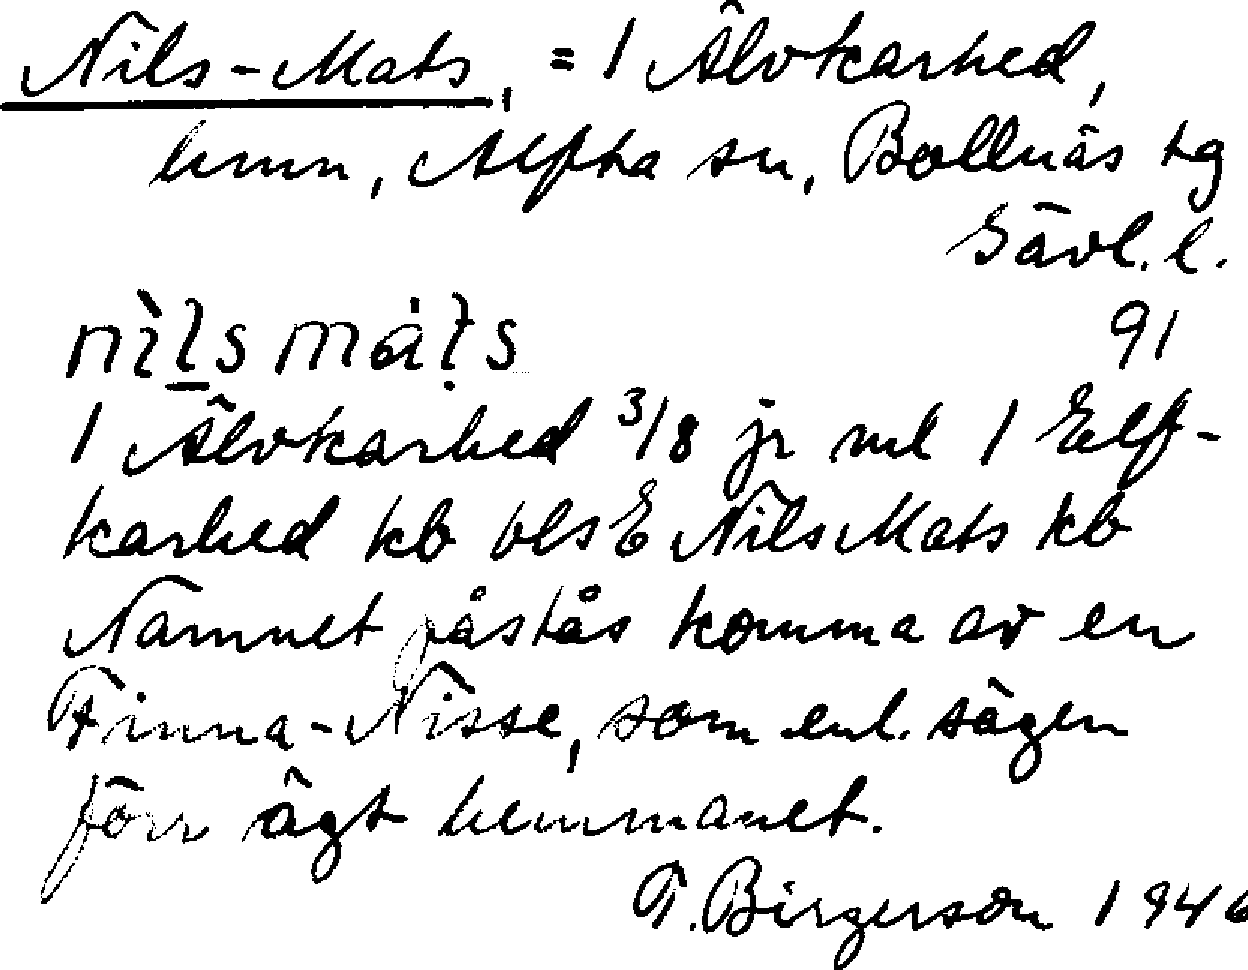 Nils-Mats, = 1 Älvkarhed,
hmn, Alfta sn, Bollnäs tg
Gävl. l.
nìls máts 91
1 Älvkarhed 3/8 jr ml 1 Elf-
karhed kb bls E Nils Mats kb
Namnet påstås komma av en
Finna-Nisse, som enl. sägen
förr ägt hemmanet.
F. Birgerson 1946